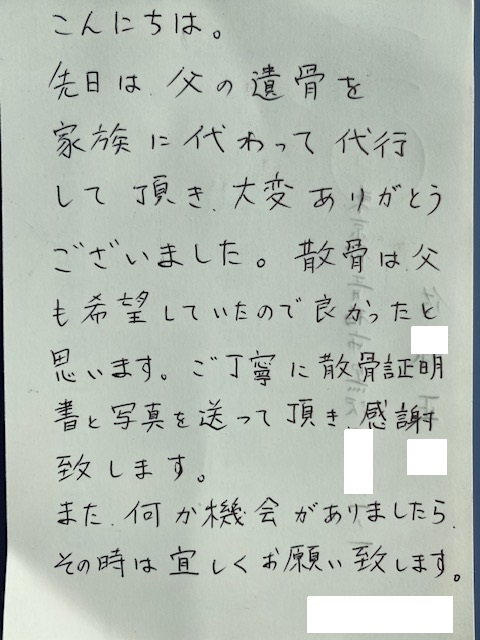 こんにちは。
先日は、父の遺骨を
家族に代わって代行
して頂き、大変ありがとう
ございました。散骨は、父
も希望していたので良かったと
思います。ご丁寧に散骨証明
書と写真を送って頂き、感謝
致します。
また、何か機会がありましたら、
その時は宜しくお願い致します。